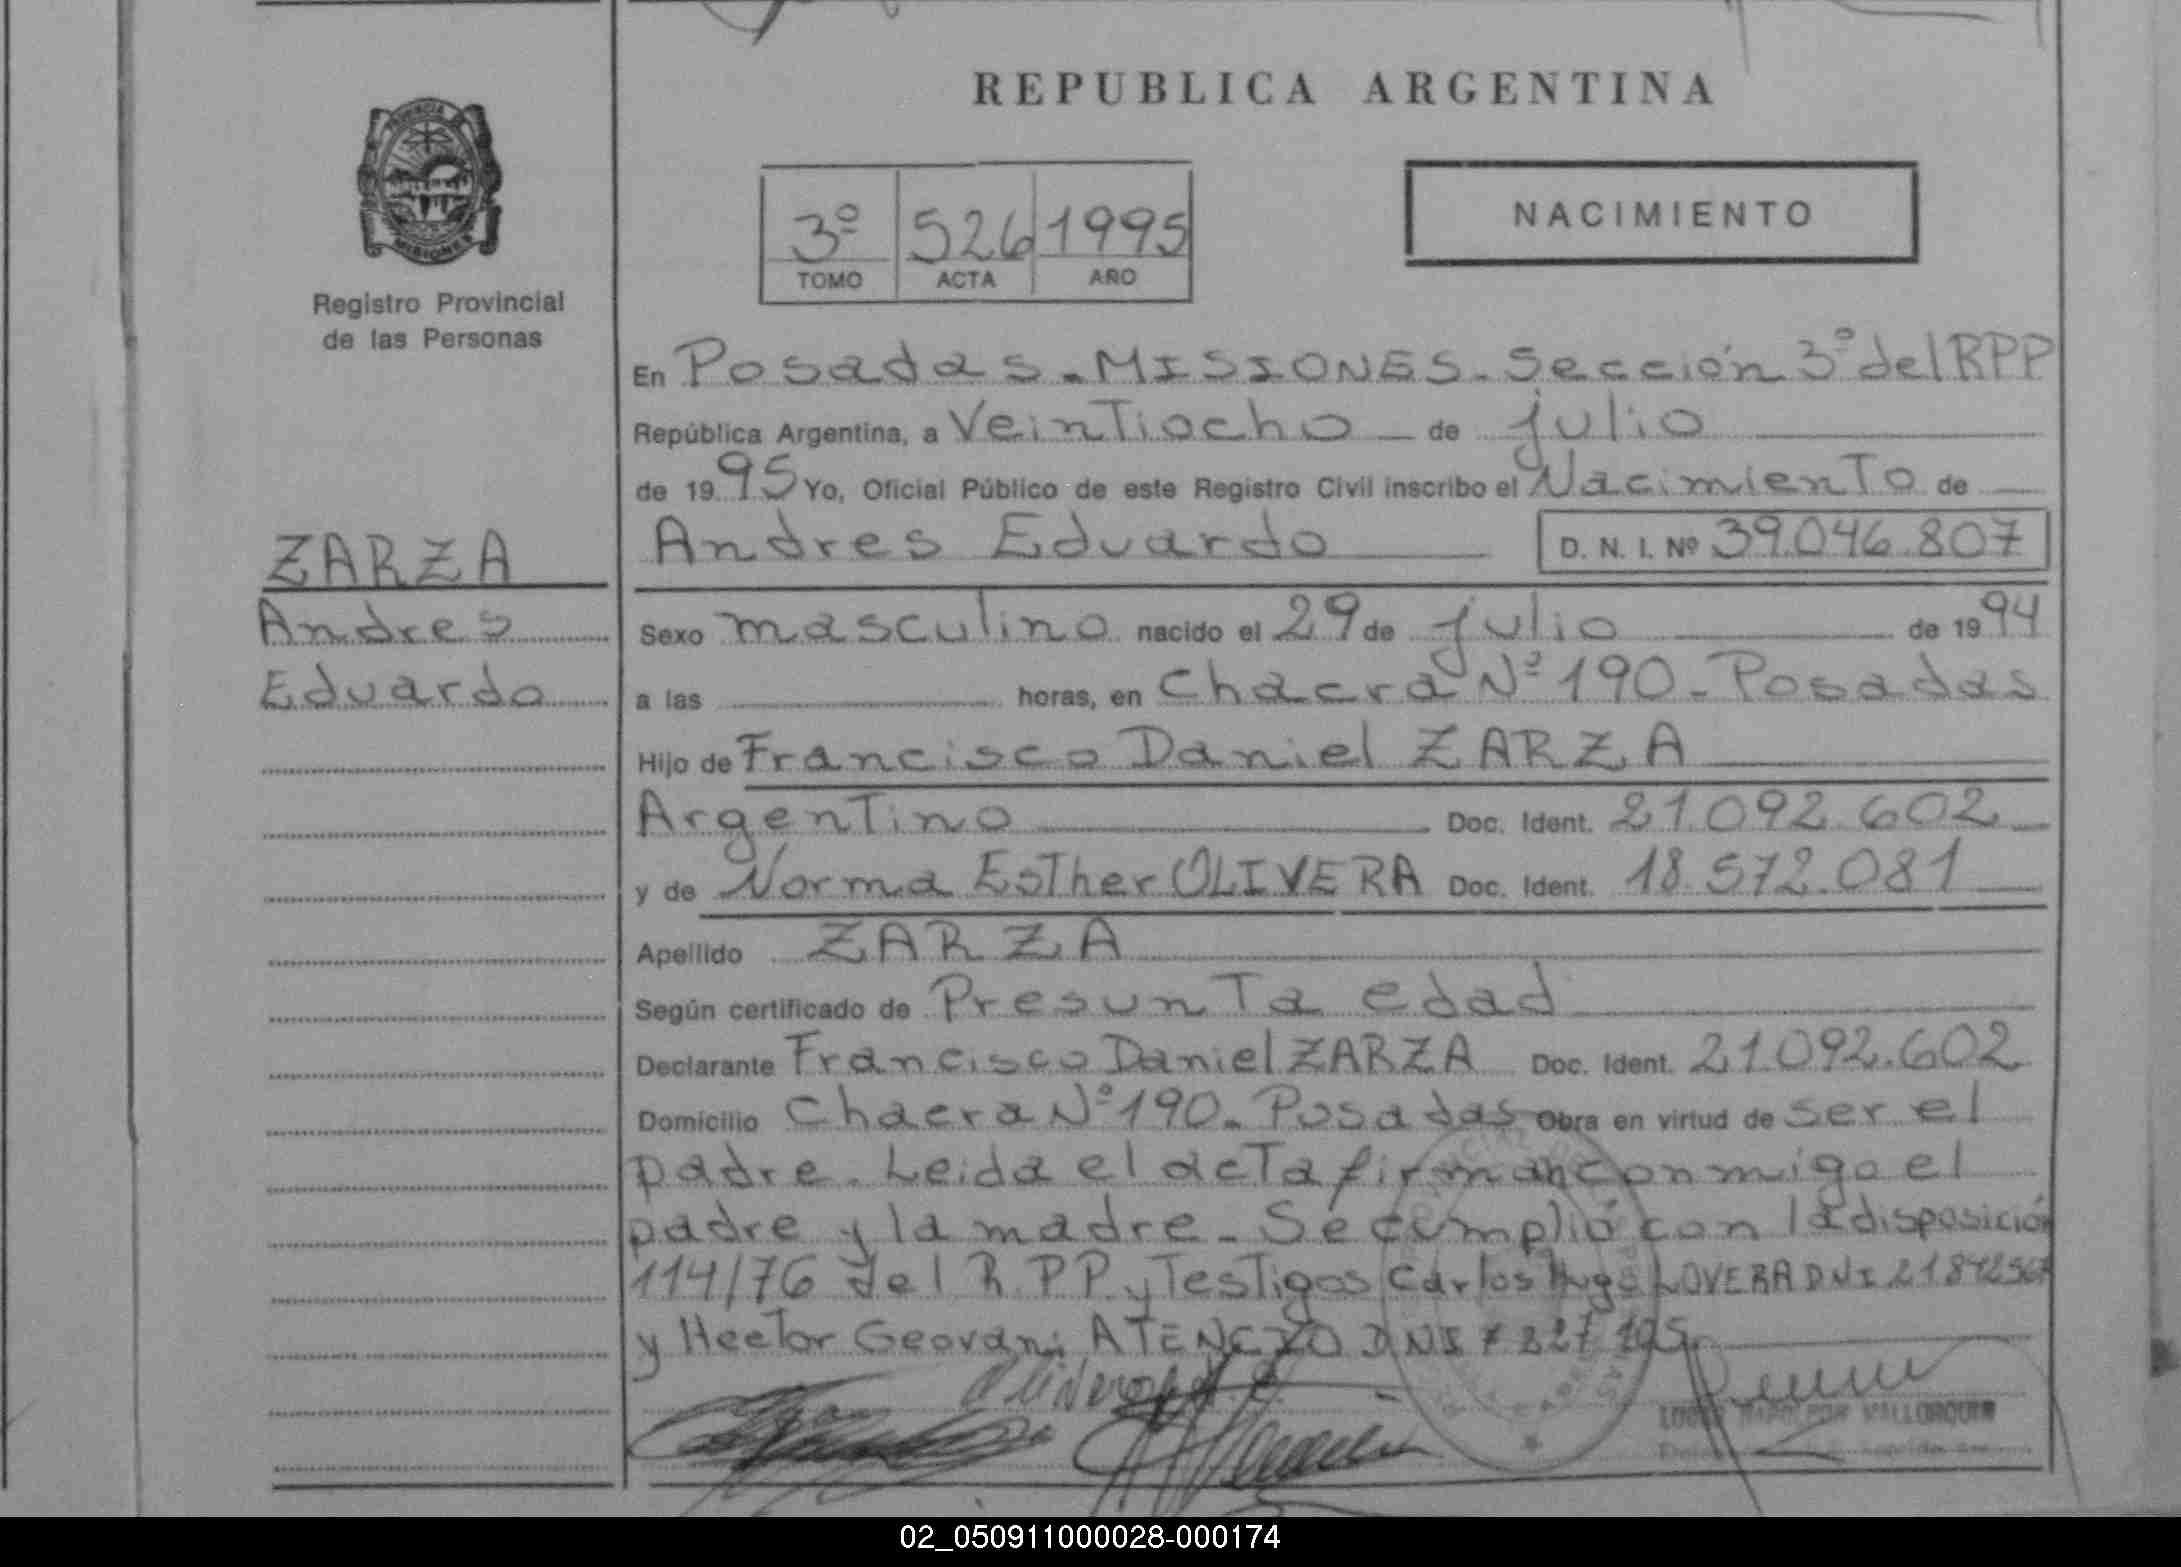 REPUBLICA ARGENTINA
PROVINCIA
MISIONES
Registro Provincial
de las Personas
3º 526 1995
TOMO ACTA AÑO
NACIMIENTO
En Posadas - MISIONES - Sección 3º del RPP
República Argentina, a Veintiocho de julio
de 1995 Yo, Oficial Público de este Registro Civil inscribo el Nacimiento de
ZARZA
Andres
Eduardo
Andres Eduardo D. N. I. Nº 39.046.807
Sexo masculino nacido el 29 de julio de 1994
a las horas, en Chacra Nº 190 - Posadas
Hijo de Francisco Daniel ZARZA
Argentino Doc. Ident. 21.092.602
y de Norma Esther OLIVERA Doc. Ident. 18.572.081
Apellido ZARZA
Según certificado de Presunta edad
Declarante Francisco Daniel ZARZA Doc. Ident. 21.092.602
Domicilio Chacra Nº 190 - Posadas Obra en virtud de ser el
padre. Leida el acta firman conmigo el
padre y la madre - Se cumplió con la disposición
114/76 del R.P.P. y Testigos Carlos Hugo LOVERA DNI
y Hector Geovani ATENCIO DNI
02_050911000028-000174